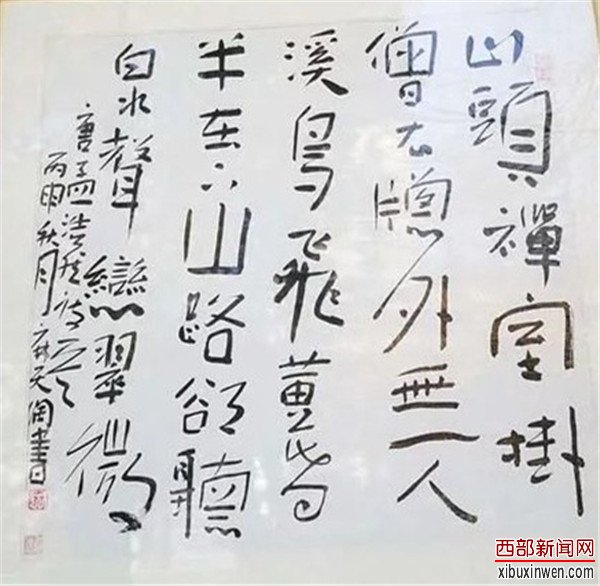 山頭禪室掛
僧衣牕外無人
溪鳥飛黃昏
半在下山路卻聽
泉聲戀翠微
唐孟浩然詩
丙申秋月 天 書
西部新闻网
xibuxinwen.com